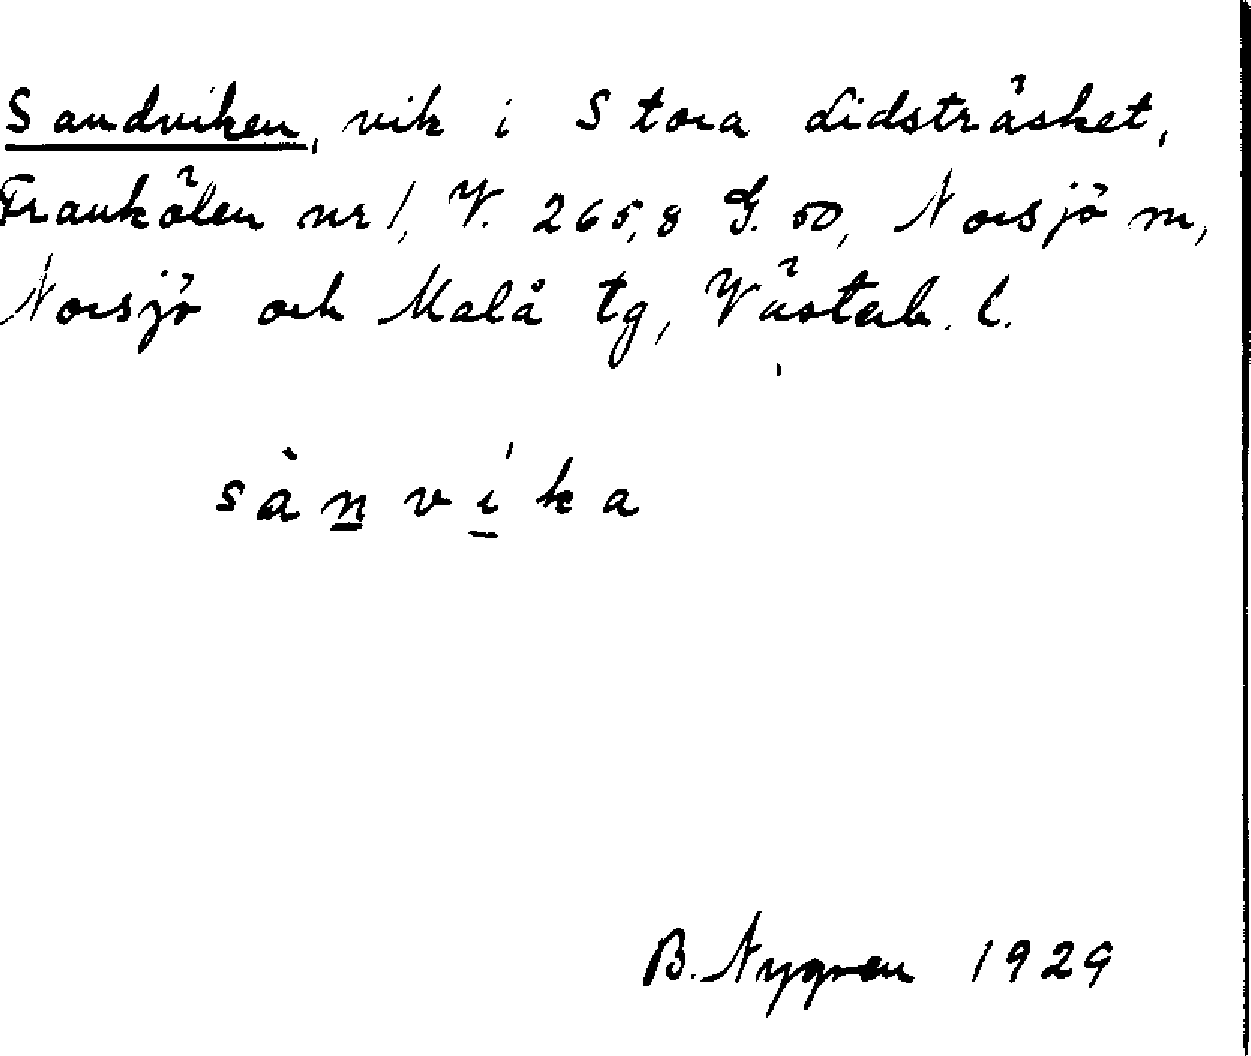 Sandviken, vik i Stora Lidsträsket,
Frankälen nr 1, V. 265,8 G. 50, Norsjö sn,
Norsjö och Malå tg, Västerb. l.
sànvíka
B. Nygren 1929